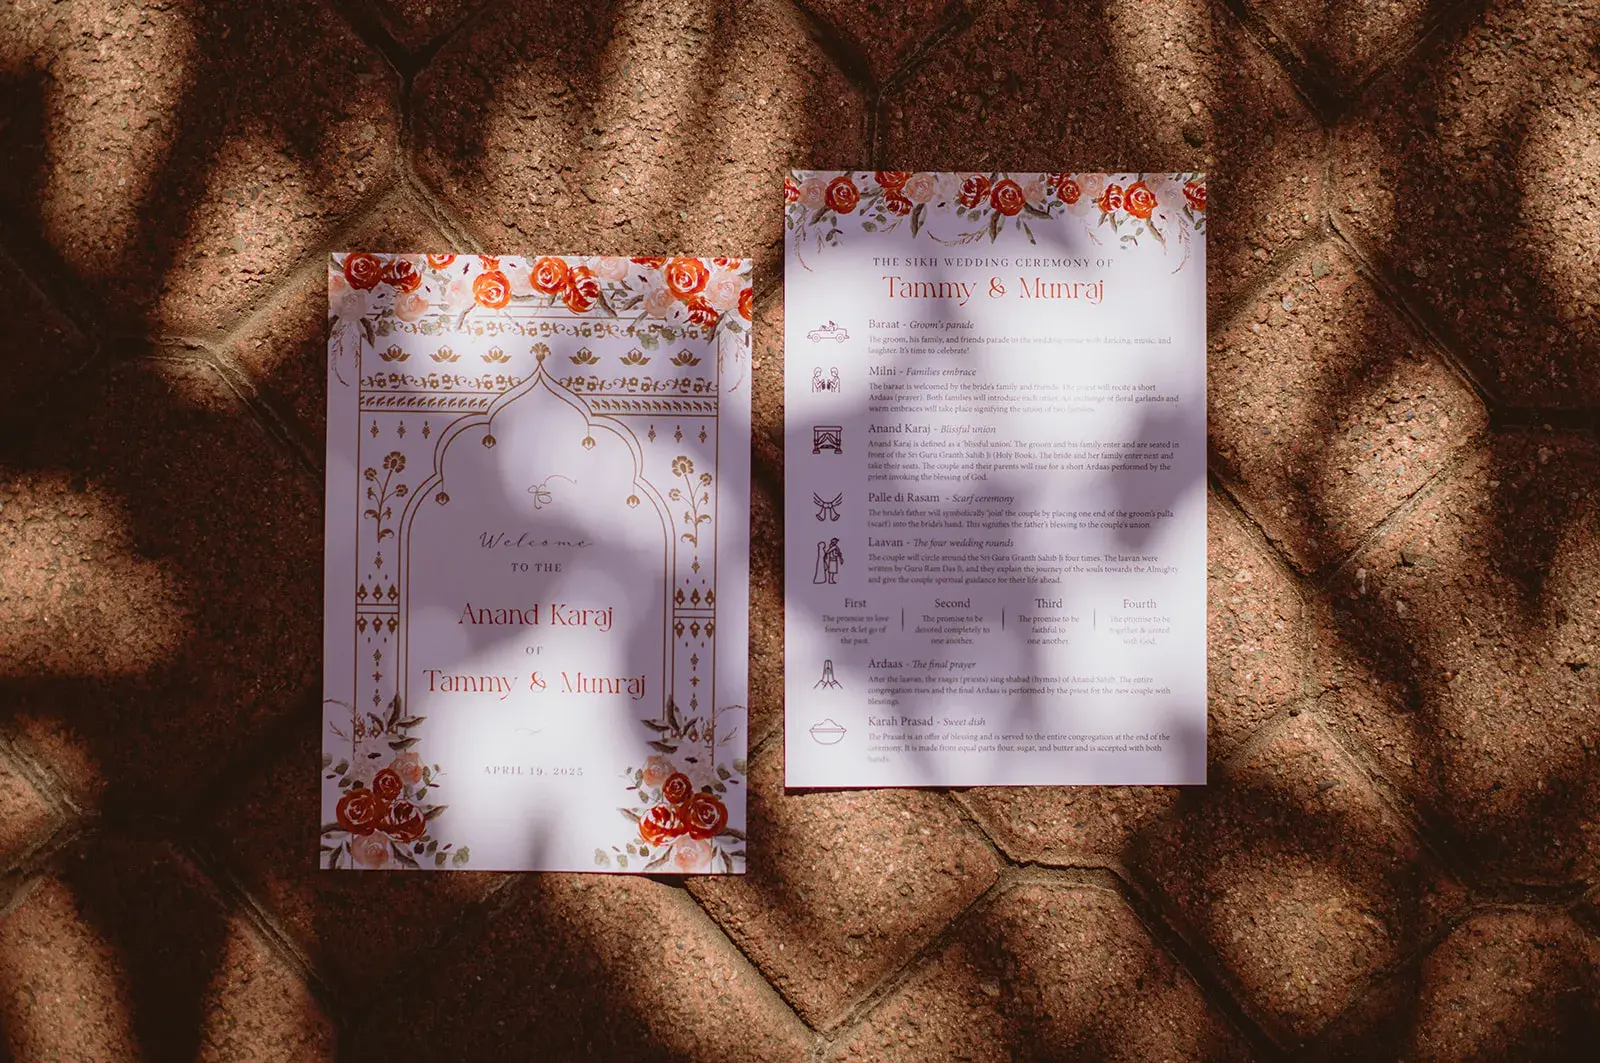 ੴ
Welcome
TO THE
Anand Karaj
OF
Tammy & Munraj
APRIL 19, 2025
THE SIKH WEDDING CEREMONY OF
Tammy & Munraj
Baraat - Groom's parade
The groom, his family, and friends parade to the wedding venue with dancing, music, and
laughter. It's time to celebrate!
Milni - Families embrace
The baraat is welcomed by the bride's family and friends. The priest will recite a short
Ardaas (prayer). Both families will introduce each other. An exchange of floral garlands and
warm embraces will take place signifying the union of two families.
Anand Karaj - Blissful union
Anand Karaj is defined as a 'blissful union'. The groom and his family enter and are seated in
front of the Sri Guru Granth Sahib Ji (Holy Book). The bride and her family enter next and
take their seats. The couple and their parents will rise for a short Ardaas performed by the
priest invoking the blessing of God.
Palle di Rasam - Scarf ceremony
The bride's father will symbolically 'join' the couple by placing one end of the groom's palla
(scarf) into the bride's hand. This signifies the father's blessing to the couple's union.
Laavan - The four wedding rounds
The couple will circle around the Sri Guru Granth Sahib Ji four times. The laavan were
written by Guru Ram Das Ji, and they explain the journey of the souls towards the Almighty
and give the couple spiritual guidance for their life ahead.
First
The promise to love
forever & let go of
the past.
Second
The promise to be
devoted completely to
one another.
Third
The promise to be
faithful to
one another.
Fourth
The promise to be
together & united
with God.
Ardaas - The final prayer
After the laavan, the raagis (priests) sing shabad (hymns) of Anand Sahib. The entire
congregation rises and the final Ardaas is performed by the priest for the new couple with
blessings.
Karah Prasad - Sweet dish
The Prasad is an offer of blessing and is served to the entire congregation at the end of the
ceremony. It is made from equal parts flour, sugar, and butter and is accepted with both
hands.